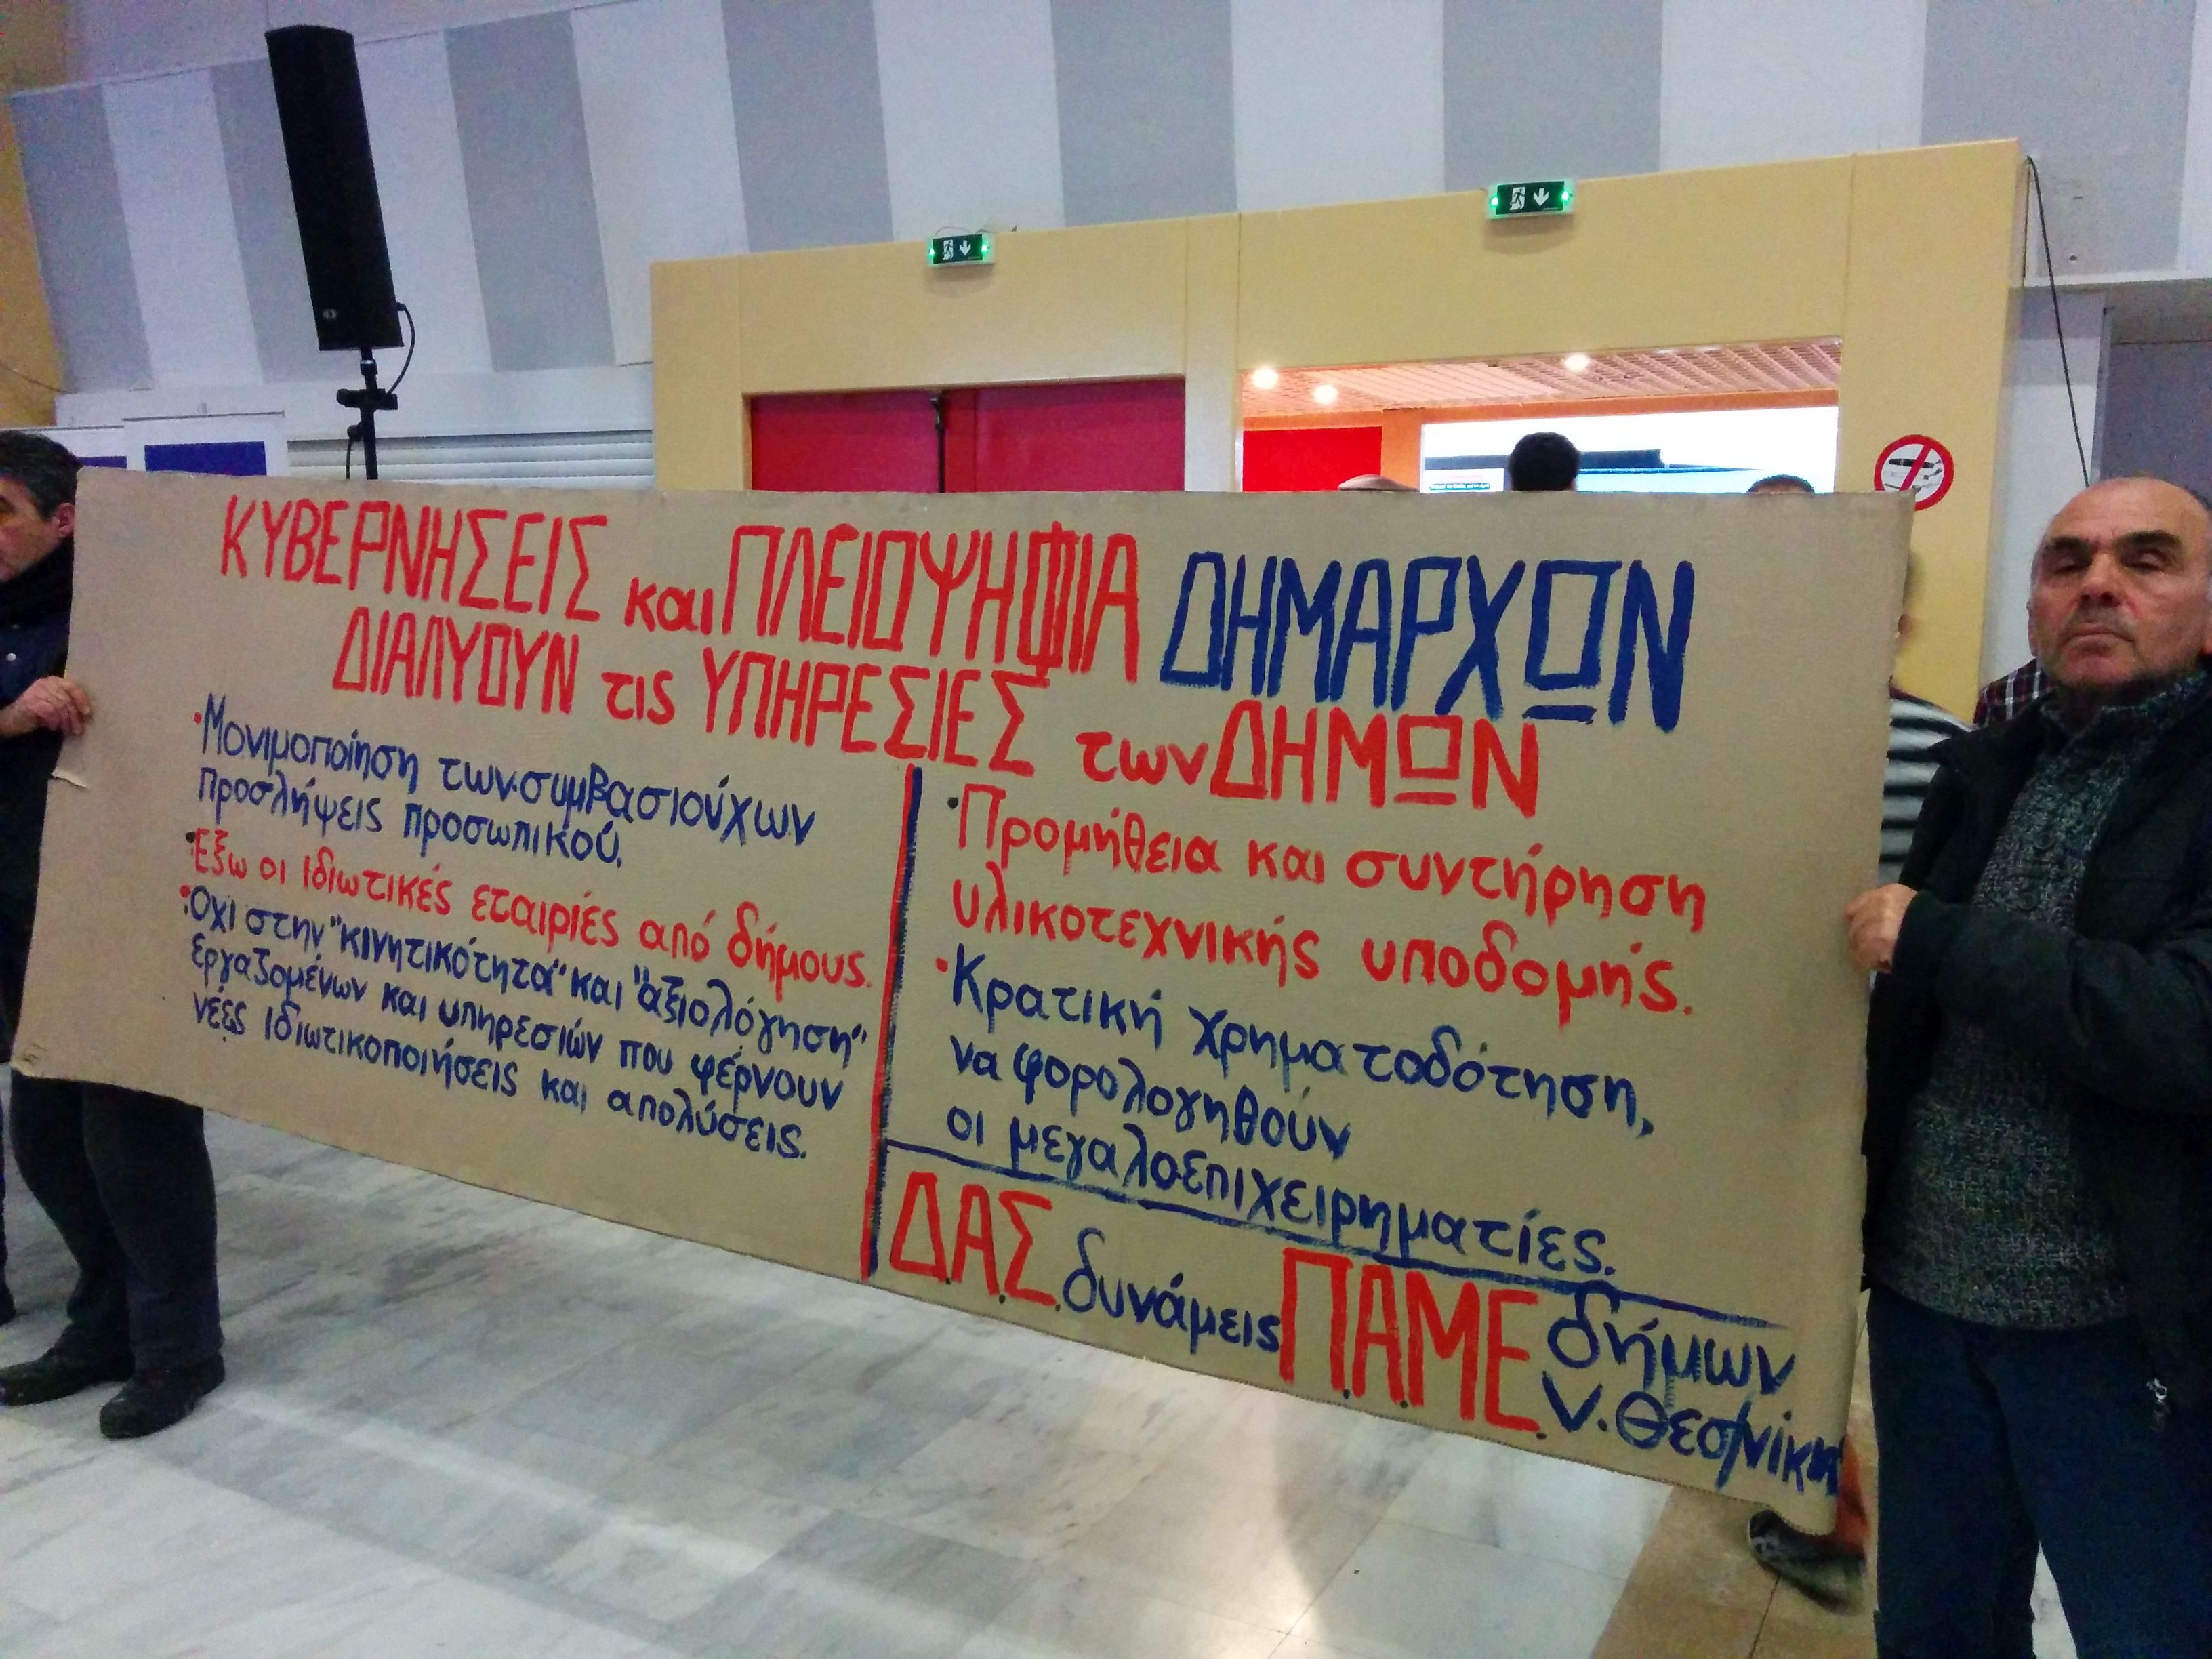 ΚΥΒΕΡΝΗΣΕΙΣ και ΠΛΕΙΟΨΗΦΙΑ ΔΗΜΑΡΧΩΝ
ΔΙΑΛΥΟΥΝ τις ΥΠΗΡΕΣΙΕΣ των ΔΗΜΩΝ
·Μονιμοποίηση των συμβασιούχων
προσλήψεις προσωπικού.
·Εξω οι ιδιωτικές εταιρίες από δήμους.
·Οχι στην "κινητικότητα" και "αξιολόγηση"
εργαζομένων και υπηρεσιών που φέρνουν
νέες ιδιωτικοποιήσεις και απολύσεις.
·Προμήθεια και συντήρηση
υλικοτεχνικής υποδομής.
·Κρατική χρηματοδότηση,
να φορολογηθούν
οι μεγαλοεπιχειρηματίες.
Δ.Α.Σ. δυνάμεις Π.Α.ΜΕ. δήμων
Ν. Θεσ/νίκη